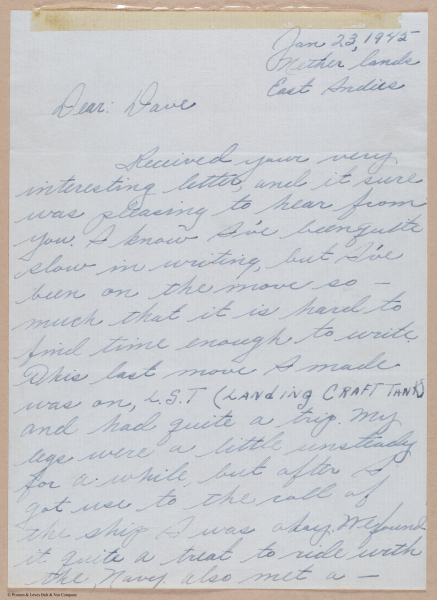 Jan 23, 1945
Netherlands
East Indies
Dear: Dave
Received your very
interesting letter, and it sure
was pleasing to hear from
you. I know I've been quite
slow in writing, but I've
been on the move so -
much that it is hard to
find time enough to write.
This last move I made
was on, L.S.T (LANDING CRAFT TANK)
and had quite a trip. My
legs were a little unsteady
for a while, but after I
got use to the roll of
the ship I was okay. We found
it quite a treat to ride with
the Navy, also met a -